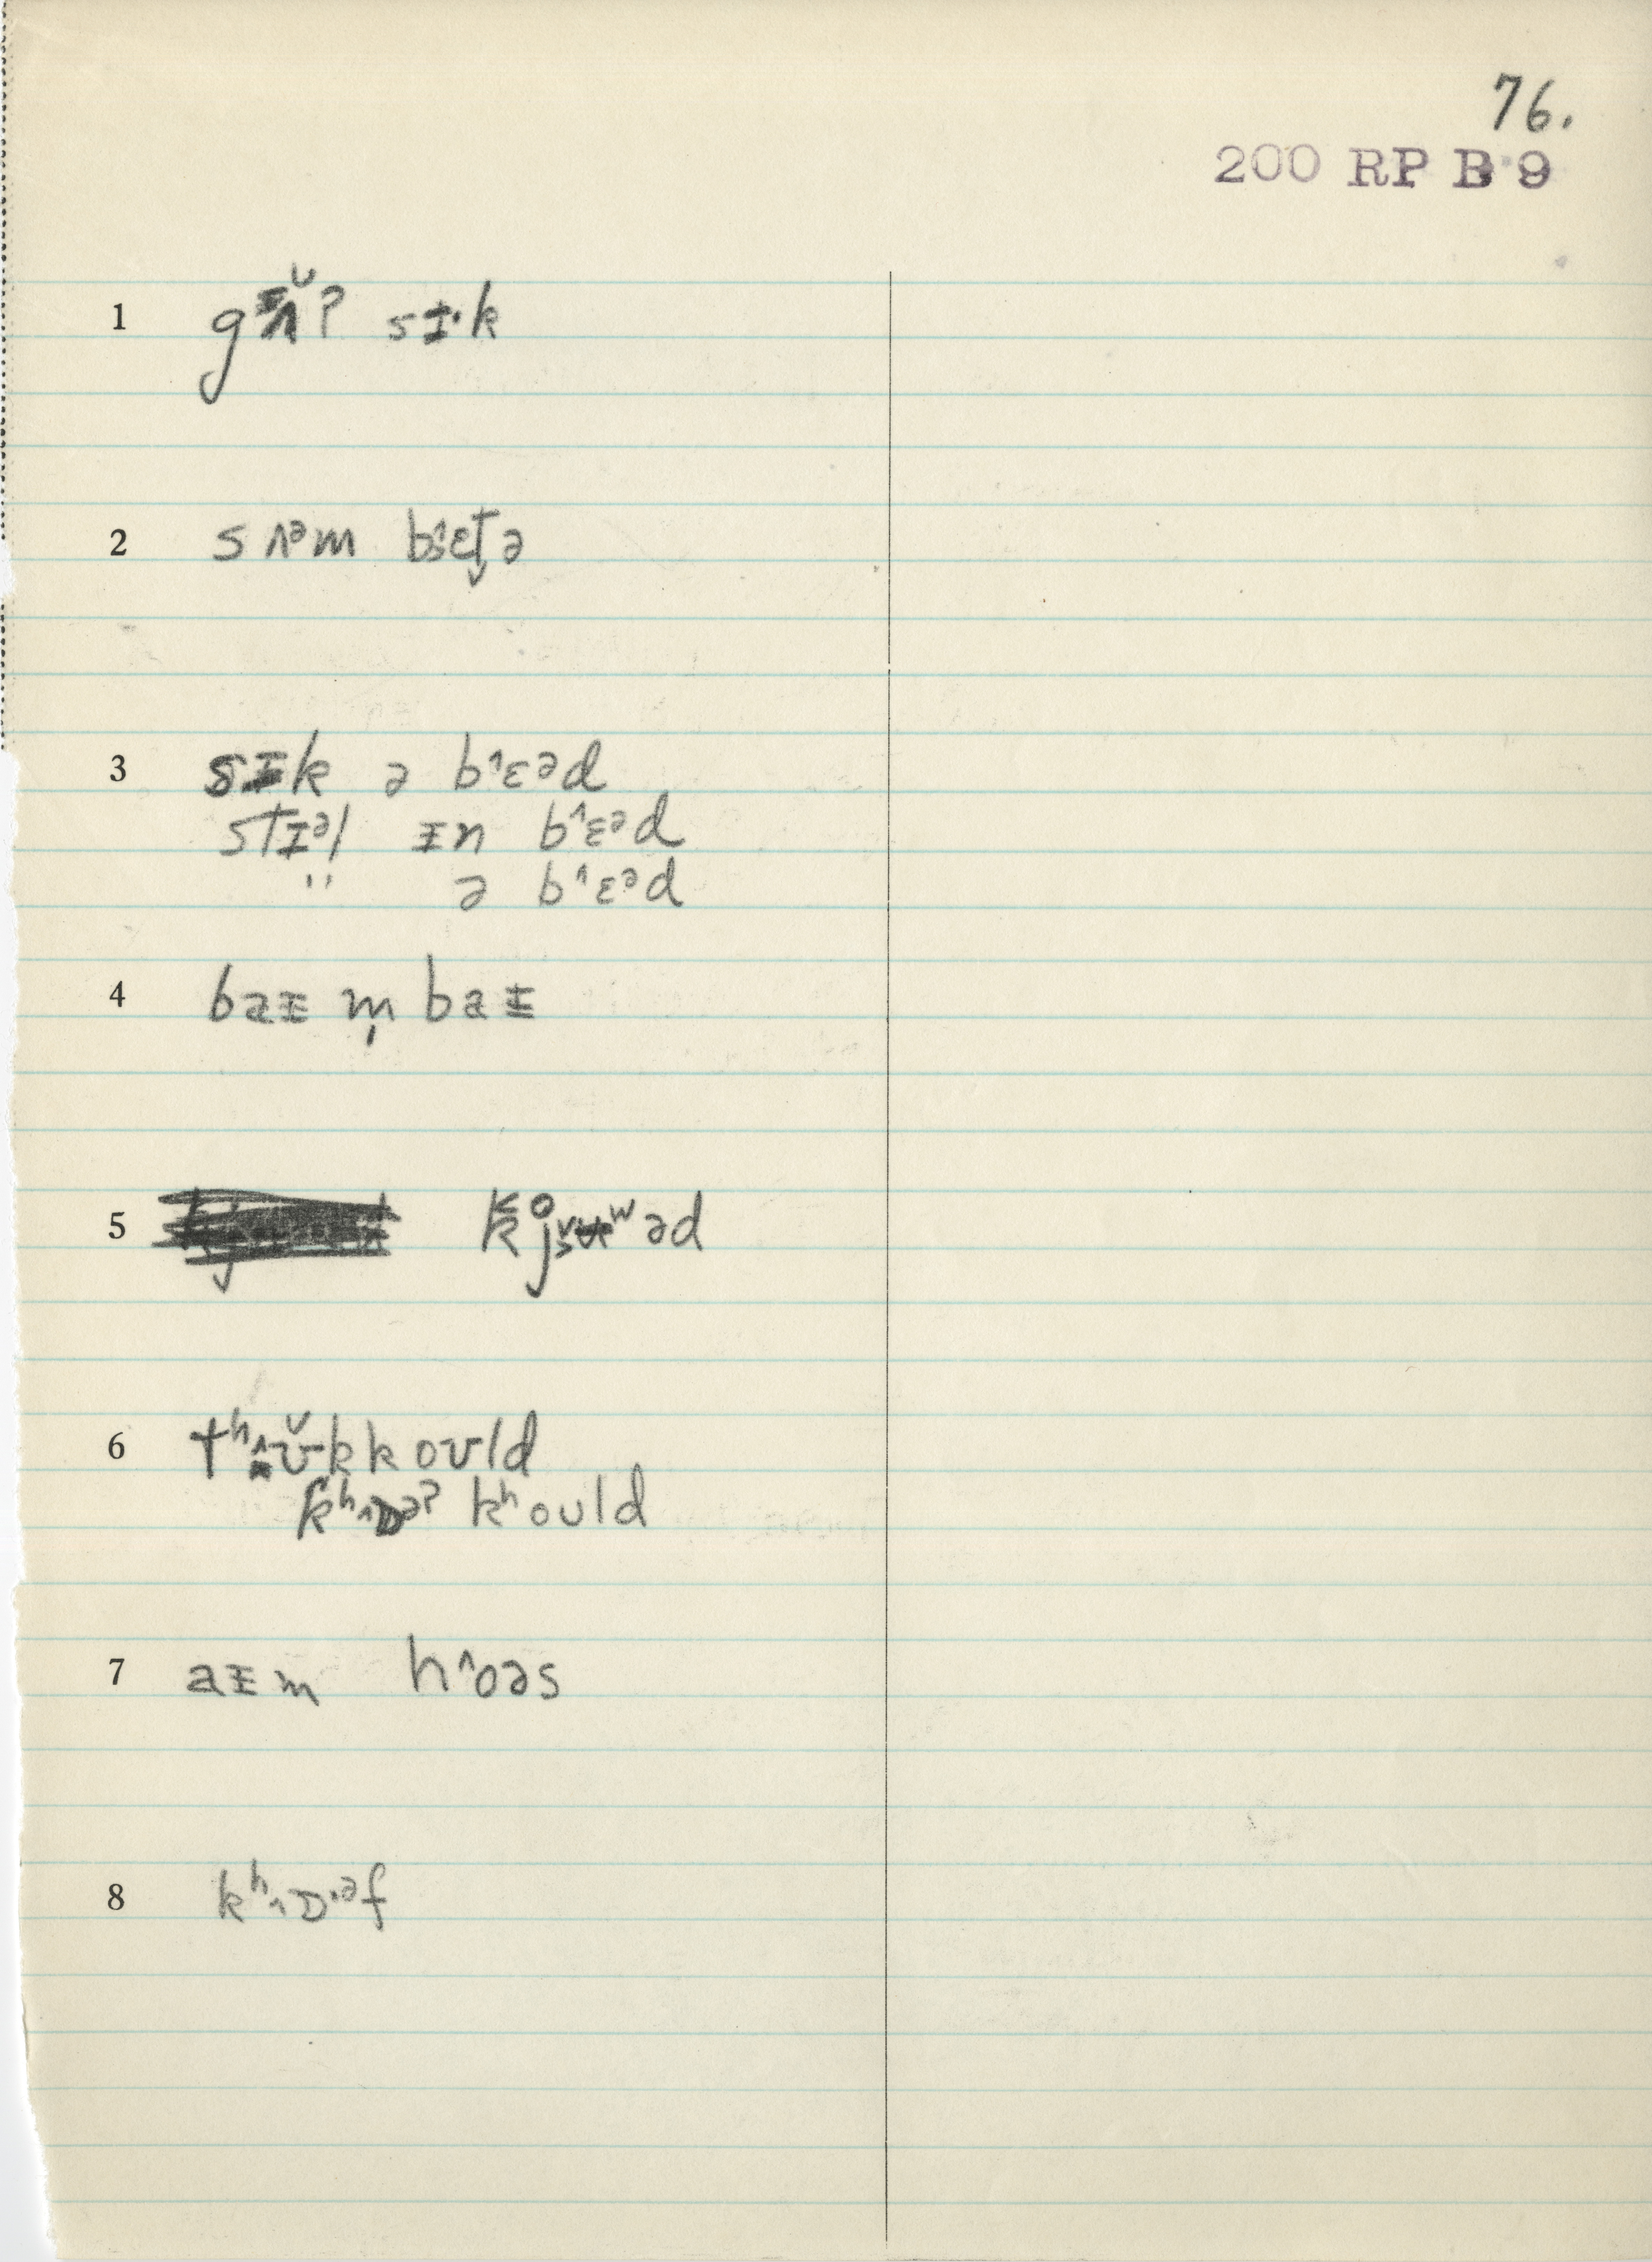 76.
200 RP B 9
1 gʌ̆ʔ sɪ·k
2 s ʌᵊm bɛt̬ə
3 sɪk ə b˄ɛᵊd
stɪᵊl ɪn b˄ɛᵊd
" ə b˄ɛᵊd
4 baɪ m̩ baɪ
5 kj̊ʉʷəd
6 tʰʊ̆kkoʊld
kʰ˄ɒᵊʔ kʰoʊld
7 aɪm h˄oəs
8 kʰ˄ɒ·ᵊf